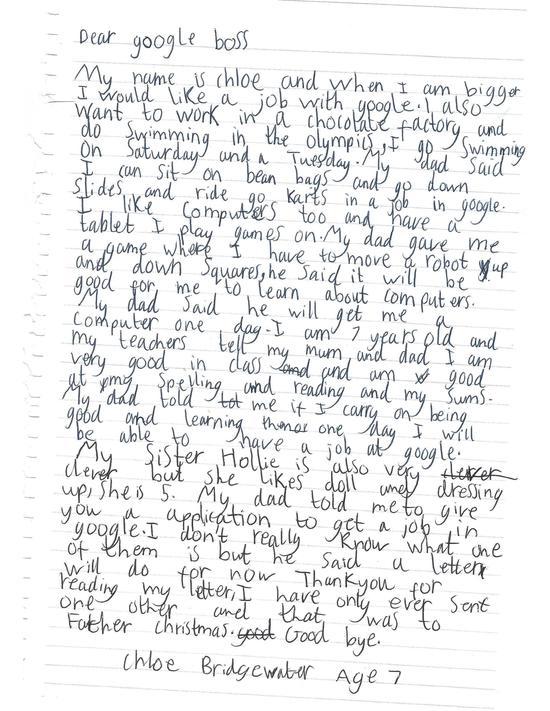 Dear google boss
My name is chloe and when I am bigger
I would like a job with google. I also
want to work in a chocolate factory and
do swimming in the olympics, I go swimming
on Saturday and a Tuesday. My dad said
I can sit on bean bags and go down
slides and ride go karts in a job in google.
I like computers too and have a
tablet I play games on. My dad gave me
a game where I have to move a robot up
and down squares, he said it will be
good for me to learn about computers.
My dad said he will get me a
computer one day. I am 7 years old and
my teachers tell my mum and dad I am
very good in class and and am good
at my spelling and reading and my sums.
My dad told me if I carry on being
good and learning one day I will
be able to have a job at google.
My sister Hollie is also very clever
clever but she likes doll and dressing
up, she is 5. My dad told me to give
you a application to get a job in
google. I don't really know what one
of them is but he said a letter
will do for now Thankyou for
reading my letter, I have only ever sent
one other and that was to
Father christmas. good Good bye.
Chloe Bridgewater Age 7